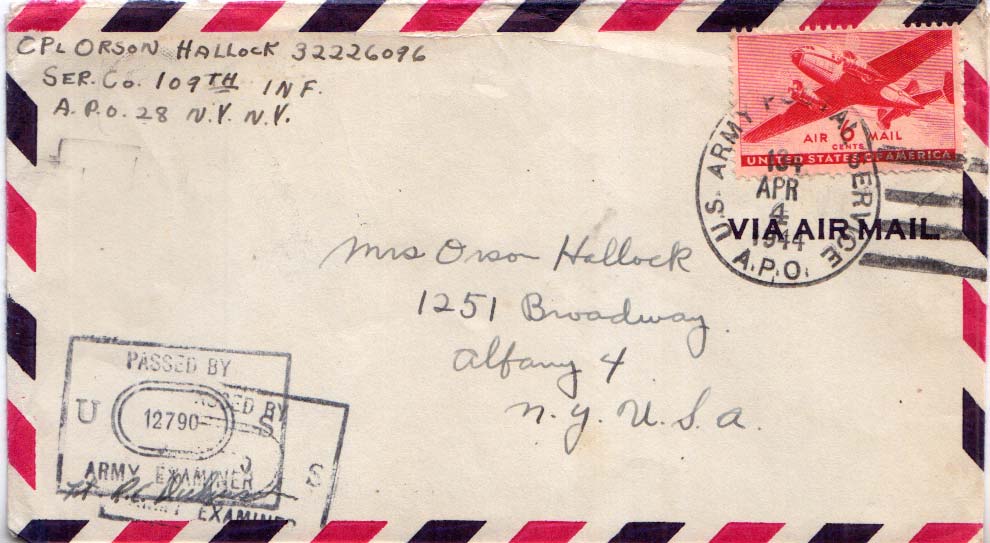 CPL ORSON HALLOCK 32226096
SER. CO. 109TH INF.
A.P.O. 28 N.Y. N.Y.
AIR MAIL
CENTS
UNITED STATES OF AMERICA
U.S. ARMY POSTAL SERVICE
APR
4
1944
A.P.O.
VIA AIR MAIL
Mrs Orson Hallock
1251 Broadway.
Albany 4
N.Y. U.S.A.
PASSED BY
U 12790 S
ARMY EXAMINER
PASSED BY
S
ARMY EXAMINER